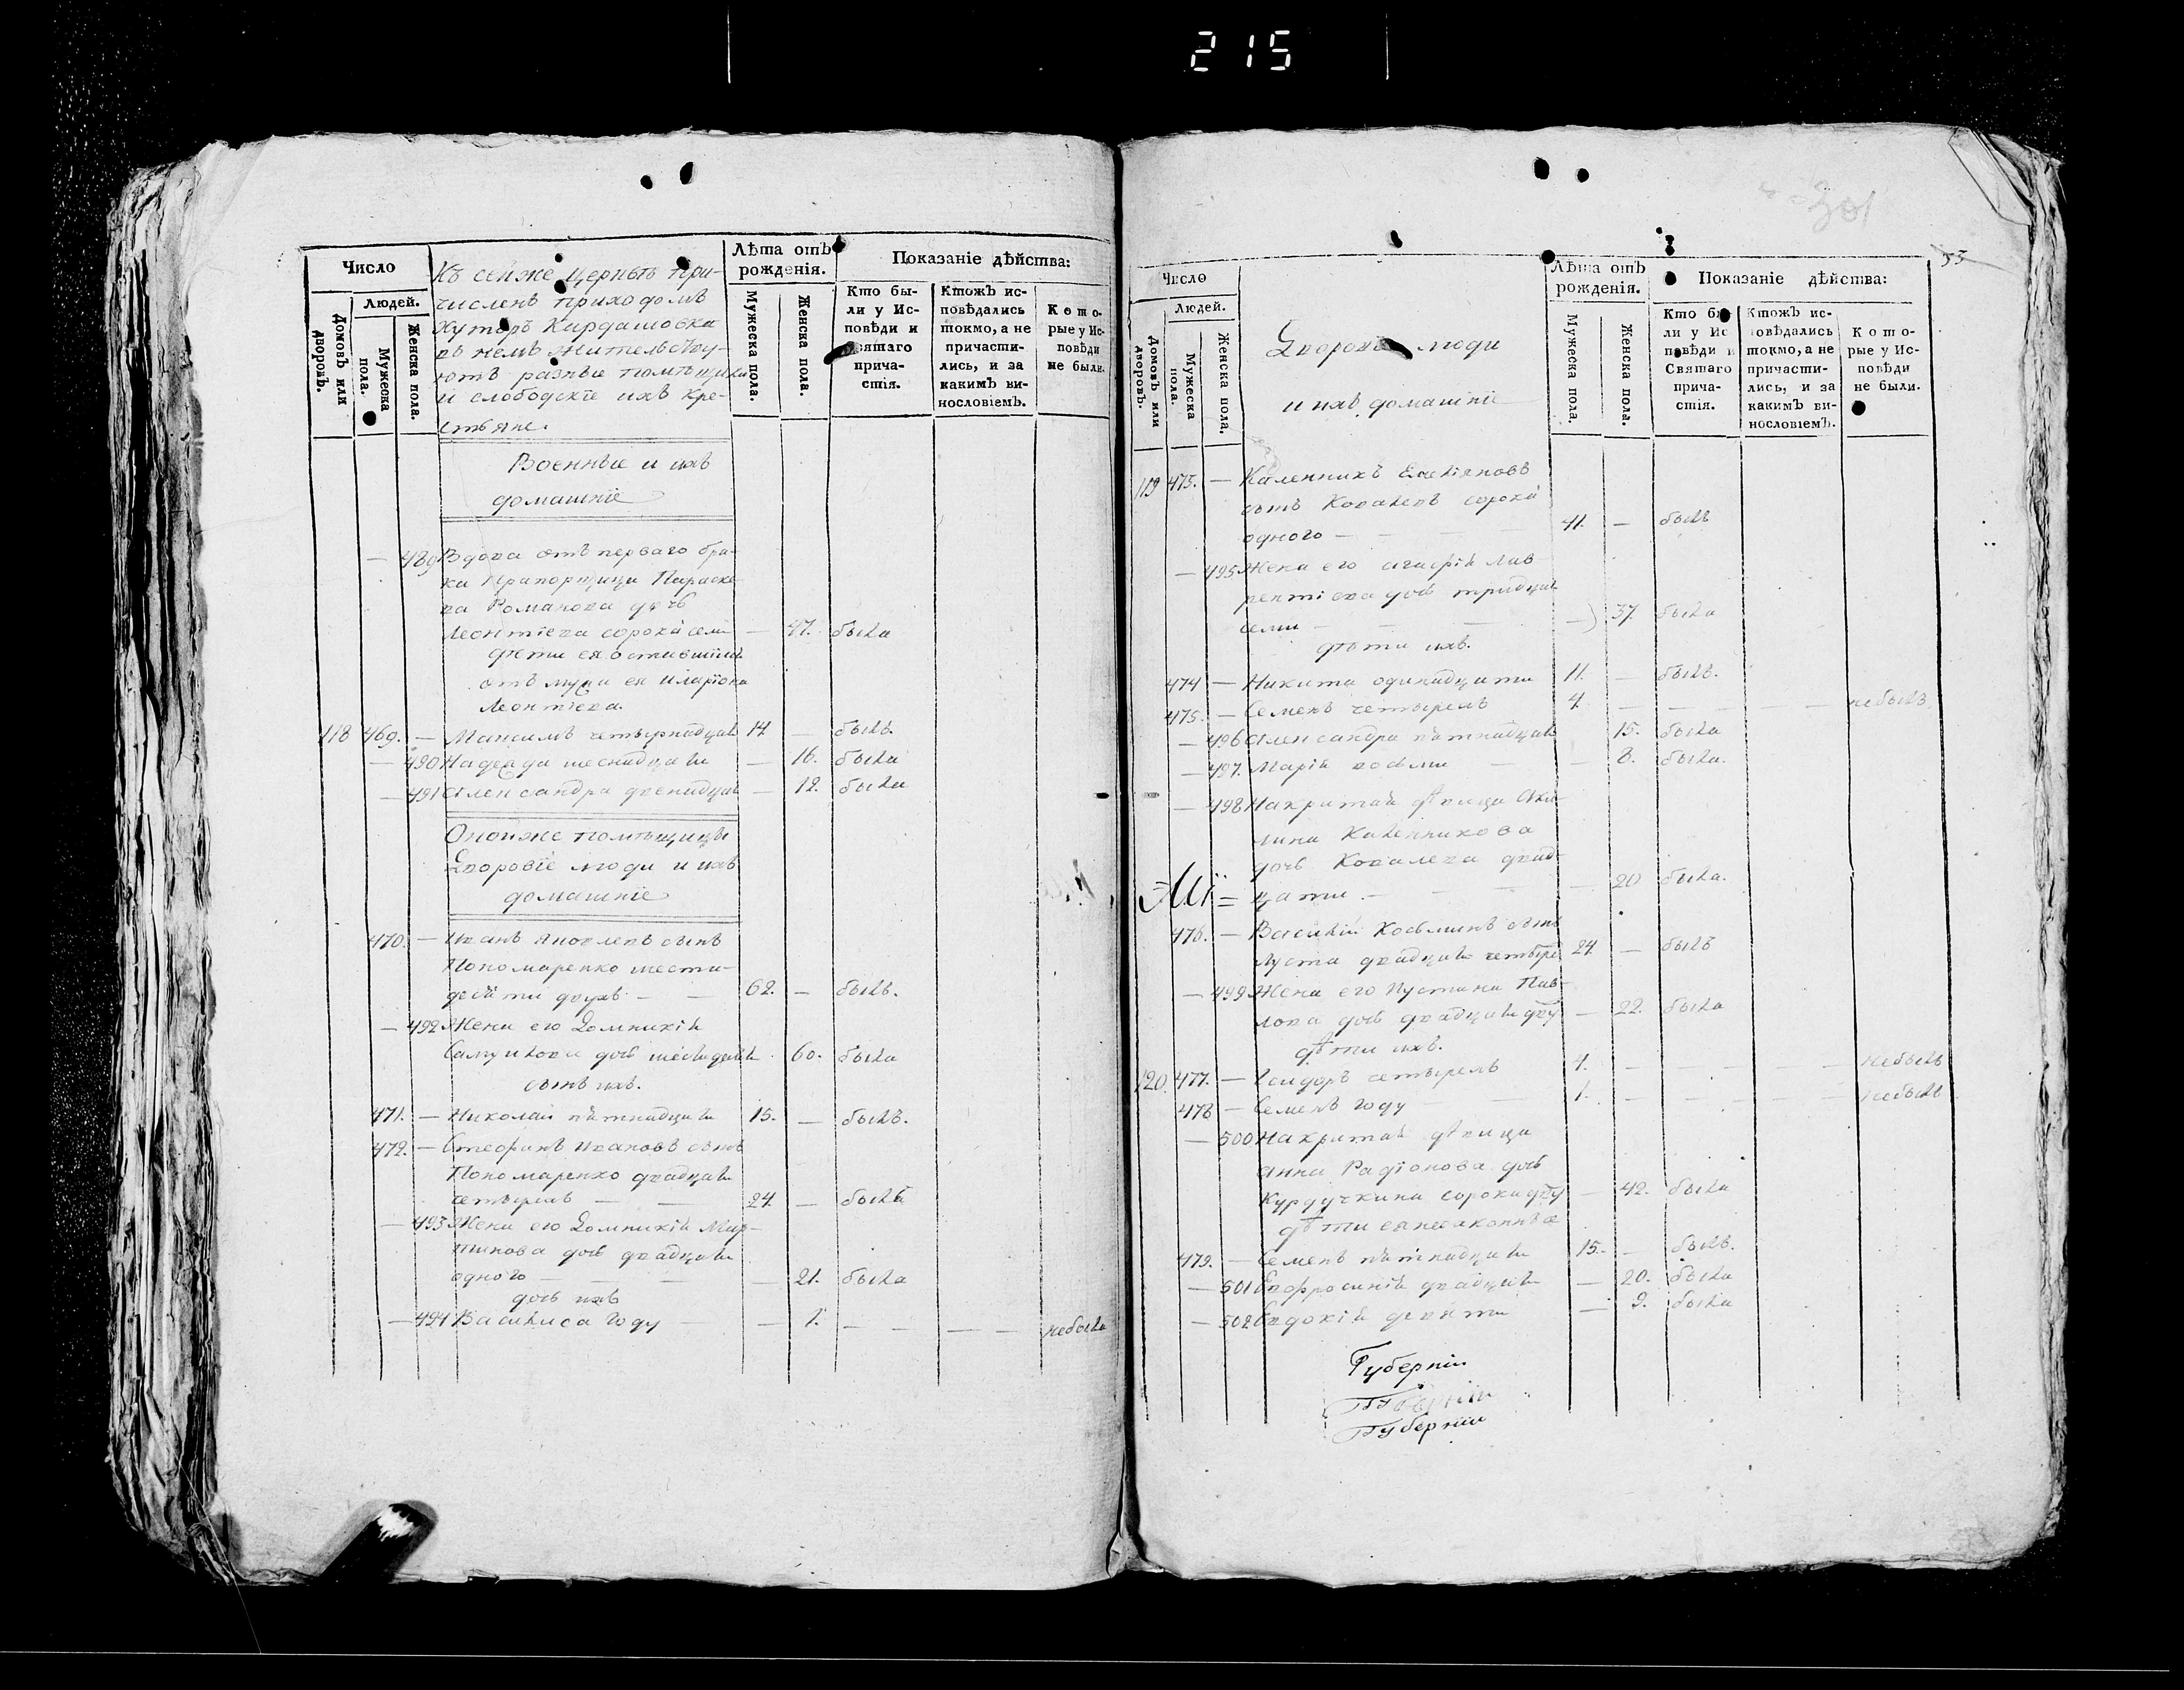 215
Число
Людей.
Домовъ или дворовъ.
Мужеска пола.
Женска пола.
Къ сей же церкви при-
численъ приходомъ
хуторъ Кардашовка
въ немъ жительству-
ютъ разные помѣщики
и слободскїе ихъ кре-
стьяне.
Лѣта отъ рожденія.
Мужеска пола.
Женска пола.
Показаніе дѣйства:
Кто бы-
ли у Ис-
повѣди и
Святаго
прича-
стія.
Ктожъ ис-
повѣдались
токмо, а не
причасти-
лись, и за
какимъ ви-
нословіемъ.
Кото-
рые у Ис-
повѣди
не были.
Военные и ихъ
домашнїе
— 489 Вдова отъ перваго бра-
ка Прапорщица Параске-
ва Романова дочь
Леонтїева сорока семи — 47. была
дѣти ея оставшїися
отъ мужа ея Иларїона
Леонтїева.
118 469. — Максимъ четырнадцати 14 — былъ.
— 490 Надежда шеснадцати — 16. была
— 491 Александра двенадцати — 12. была
Оной же помѣщицы
Дворовїе люди и ихъ
домашнїе
470. — Иванъ Яковлевъ сынъ
Пономаренко шести-
десяти двухъ — — 62. — былъ.
— 492 Жена его Домникїя
Самуилова дочь шестидесяти 60. была
сынъ ихъ.
471. — Николай пятнадцати 15. — былъ.
472. — Стефанъ Ивановъ сынъ
Пономаренко двадцати
четырехъ — 24 — былъ
— 493 Жена его Домникїя Мар-
тинова дочь двадцати
одного — — 21. была
дочь ихъ
— 494 Василиса году — — 1. — — — — небыла
301
53
Число
Людей.
Домовъ или дворовъ.
Мужеска пола.
Женска пола.
Дворовые люди
и ихъ домашнїе
Лѣта отъ рожденія.
Мужеска пола.
Женска пола.
Показаніе дѣйства:
Кто бы-
ли у Ис
повѣди и
Святаго
прича-
стія.
Ктожъ ис-
повѣдались
токмо, а не
причасти-
лись, и за
какимъ ви-
нословіемъ.
Кото-
рые у Ис-
повѣди
не были.
119 473. — Каленникъ
сынъ Ковалевъ сорока
одного — — — 41. — былъ
— 495 Жена его Агафїя Лав
рентїева дочь тридцати
семи — — — 37. была
дѣти ихъ.
474 — Никита одинадцати 11. — былъ.
475. — Семенъ четырехъ 4. — — — — — небылъ
— 496 Александра пятнадцати 15. была
— 497. Марїя восьми — — 8. была.
— 498 Накритая дѣвица Аку-
лина Каленникова
дочь Ковалева двад-
цати. — — — 20 была.
476. — Василїй Косьминъ сынъ
двадцати четыре 24. — былъ
— 499 Жена его Иустина Пав-
лова дочь двадцати дву — 22. была
дѣти ихъ.
120 477. — Исидоръ четырехъ 4. — — — — — небылъ
478 — Семенъ году — — 1. — — — — — небылъ
— 500 Накритая дѣвица
Анна Радїонова дочь
Курдучкина сорока дву — 42. была
дѣти ея незаконные
479. — Семенъ пятнадцати 15. — былъ.
— 501 Евфросинїя двадцати — 20. была
— 502 Евдокїя девяти — 9. была
Губернїи
Губернїи
Губернїи